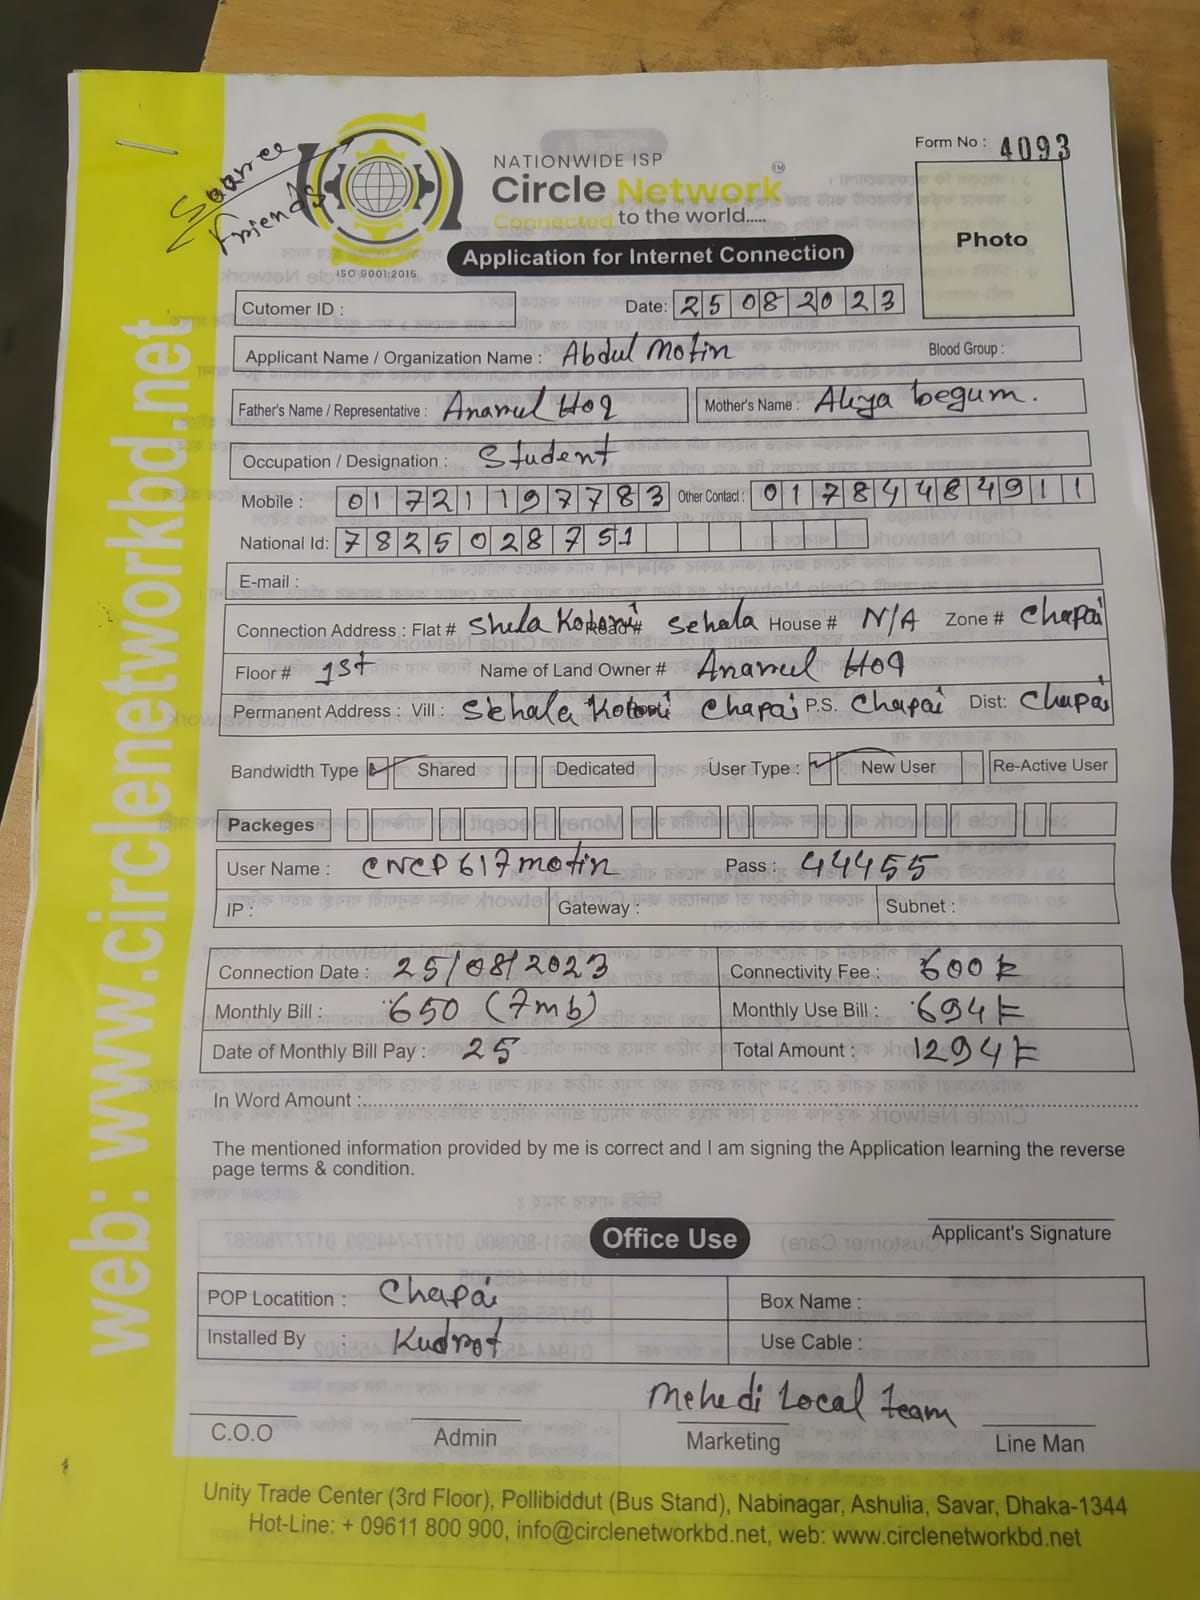 Soarce
Friends
NATIONWIDE ISP
Circle Network
TM
Connected to the world.....
ISO 9001:2015
Application for Internet Connection
Form No : 4093
Photo
Cutomer ID :
Date: 25082023
Applicant Name / Organization Name : Abdul Motin
Blood Group :
Father's Name / Representative : Anamul Hoq
Mother's Name : Aliya begum.
Occupation / Designation : Student
Mobile : 01721197783 Other Contact : 01784484911
National Id: 7825028751
E-mail :
Connection Address : Flat # Shela Kotoni Road # Sehala House # N/A Zone # Chapai
Floor # 1st Name of Land Owner # Anamul Hoq
Permanent Address : Vill : Sehala Kotoni Chapai P.S. Chapai Dist: Chapai
Bandwidth Type Shared Dedicated User Type : New User Re-Active User
Packeges
User Name : CNCP617motin Pass : 44455
IP : Gateway : Subnet :
Connection Date : 25/08/2023 Connectivity Fee : 600
Monthly Bill : 650 (7mb) Monthly Use Bill : 694
Date of Monthly Bill Pay : 25 Total Amount : 1294
In Word Amount :
The mentioned information provided by me is correct and I am signing the Application learning the reverse
page terms & condition.
Applicant's Signature
Office Use
POP Locatition : Chapai Box Name :
Installed By : Kudrot Use Cable :
Mehedi Local team
C.O.O Admin Marketing Line Man
Unity Trade Center (3rd Floor), Pollibiddut (Bus Stand), Nabinagar, Ashulia, Savar, Dhaka-1344
Hot-Line: + 09611 800 900, info@circlenetworkbd.net, web: www.circlenetworkbd.net
web: www.circlenetworkbd.net